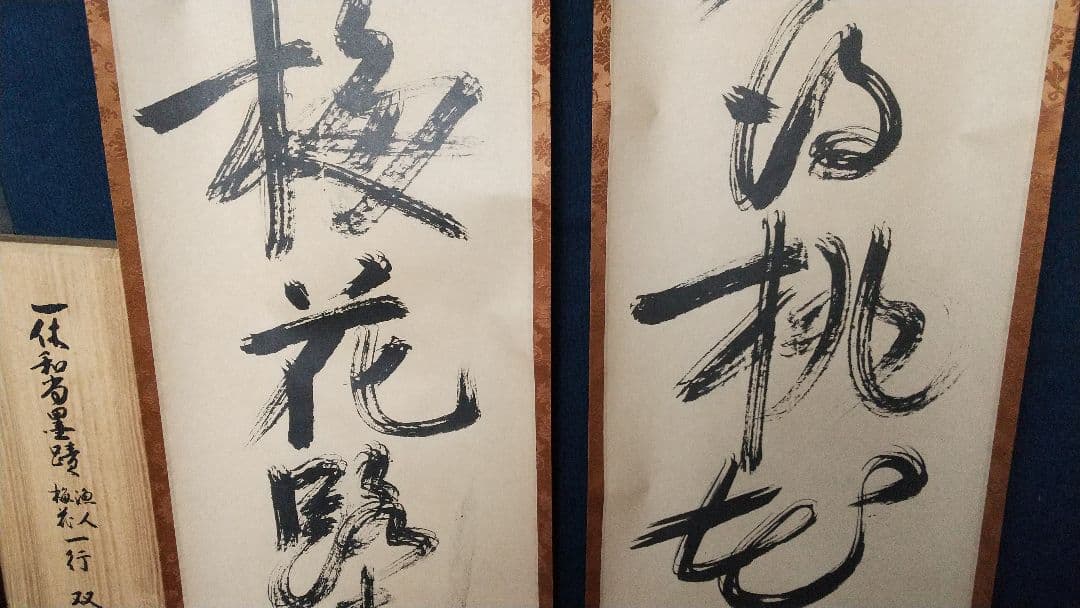 桃花
梅花路
一休和尚墨蹟
漁人
梅花
一行 双